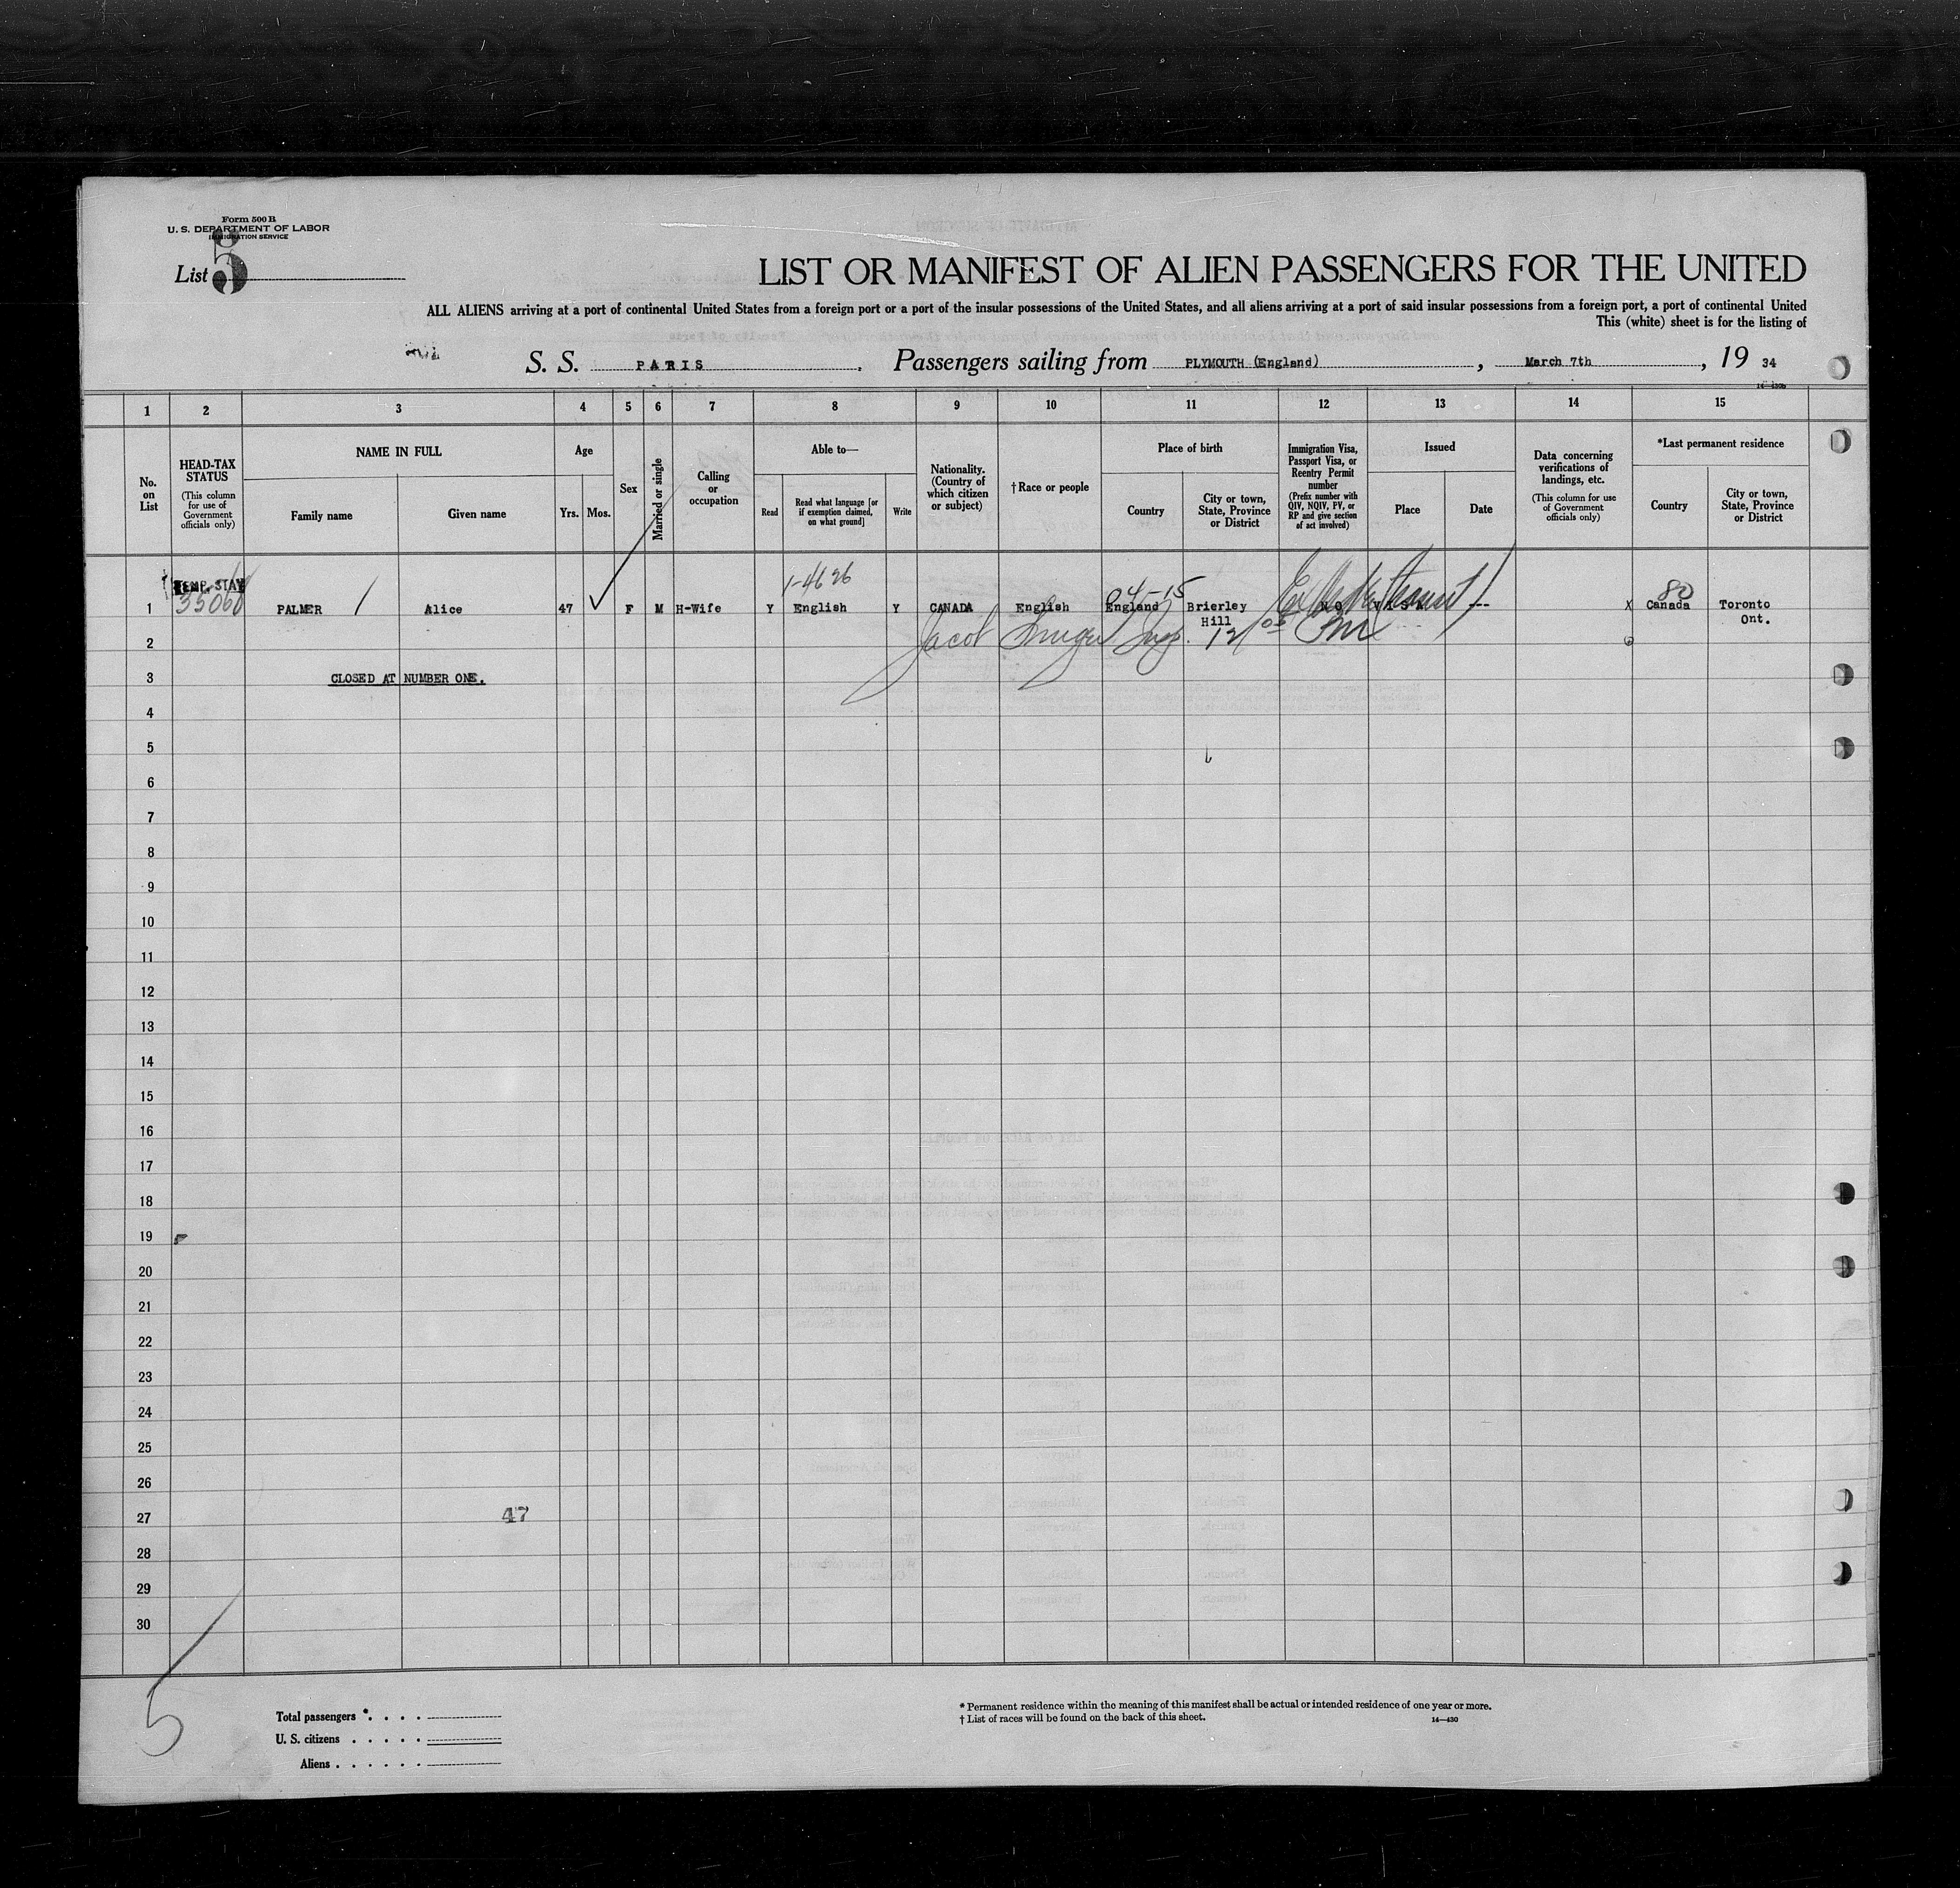 Form 500 B
U. S. DEPARTMENT OF LABOR
IMMIGRATION SERVICE
List 5
LIST OR MANIFEST OF ALIEN PASSENGERS FOR THE UNITED
ALL ALIENS arriving at a port of continental United States from a foreign port or a port of the insular possessions of the United States, and all aliens arriving at a port of said insular possessions from a foreign port, a port of continental United
This (white) sheet is for the listing of
S. S. PARIS, Passengers sailing from PLYMOUTH (England), March 7th, 19 34
14—430b
1 2 3 4 5 6 7 8 9 10 11 12 13 14 15
No. on List
HEAD-TAX STATUS
(This column for use of Government officials only)
NAME IN FULL
Family name
Given name
Age
Yrs. Mos.
Sex
Married or single
Calling or occupation
Able to—
Read
Read what language [or if exemption claimed, on what ground]
Write
Nationality. (Country of which citizen or subject)
†Race or people
Place of birth
Country
City or town, State, Province or District
Immigration Visa, Passport Visa, or Reentry Permit number
(Prefix number with QIV, NQIV, PV, or RP and give section of act involved)
Issued
Place
Date
Data concerning verifications of landings, etc.
(This column for use of Government officials only)
*Last permanent residence
Country
City or town, State, Province or District
TEMP. STAY
1-4626
04-15
80
1 PALMER Alice 47 F M H-Wife Y English Y CANADA English England Brierley Hill NO VISA --- X Canada Toronto Ont.
2 Jacob Insp.
3 CLOSED AT NUMBER ONE.
4
5
6
7
8
9
10
11
12
13
14
15
16
17
18
19
20
21
22
23
24
25
26
27 47
28
29
30
5
Total passengers
U. S. citizens
Aliens
* Permanent residence within the meaning of this manifest shall be actual or intended residence of one year or more.
† List of races will be found on the back of this sheet.
14—430